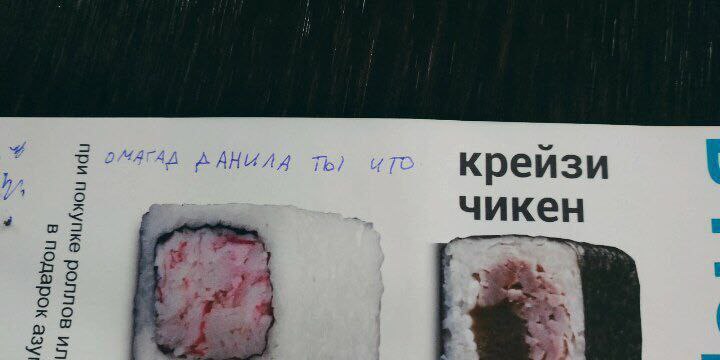 омагад данила ты что
крейзи
чикен
при покупке роллов или
в подарок